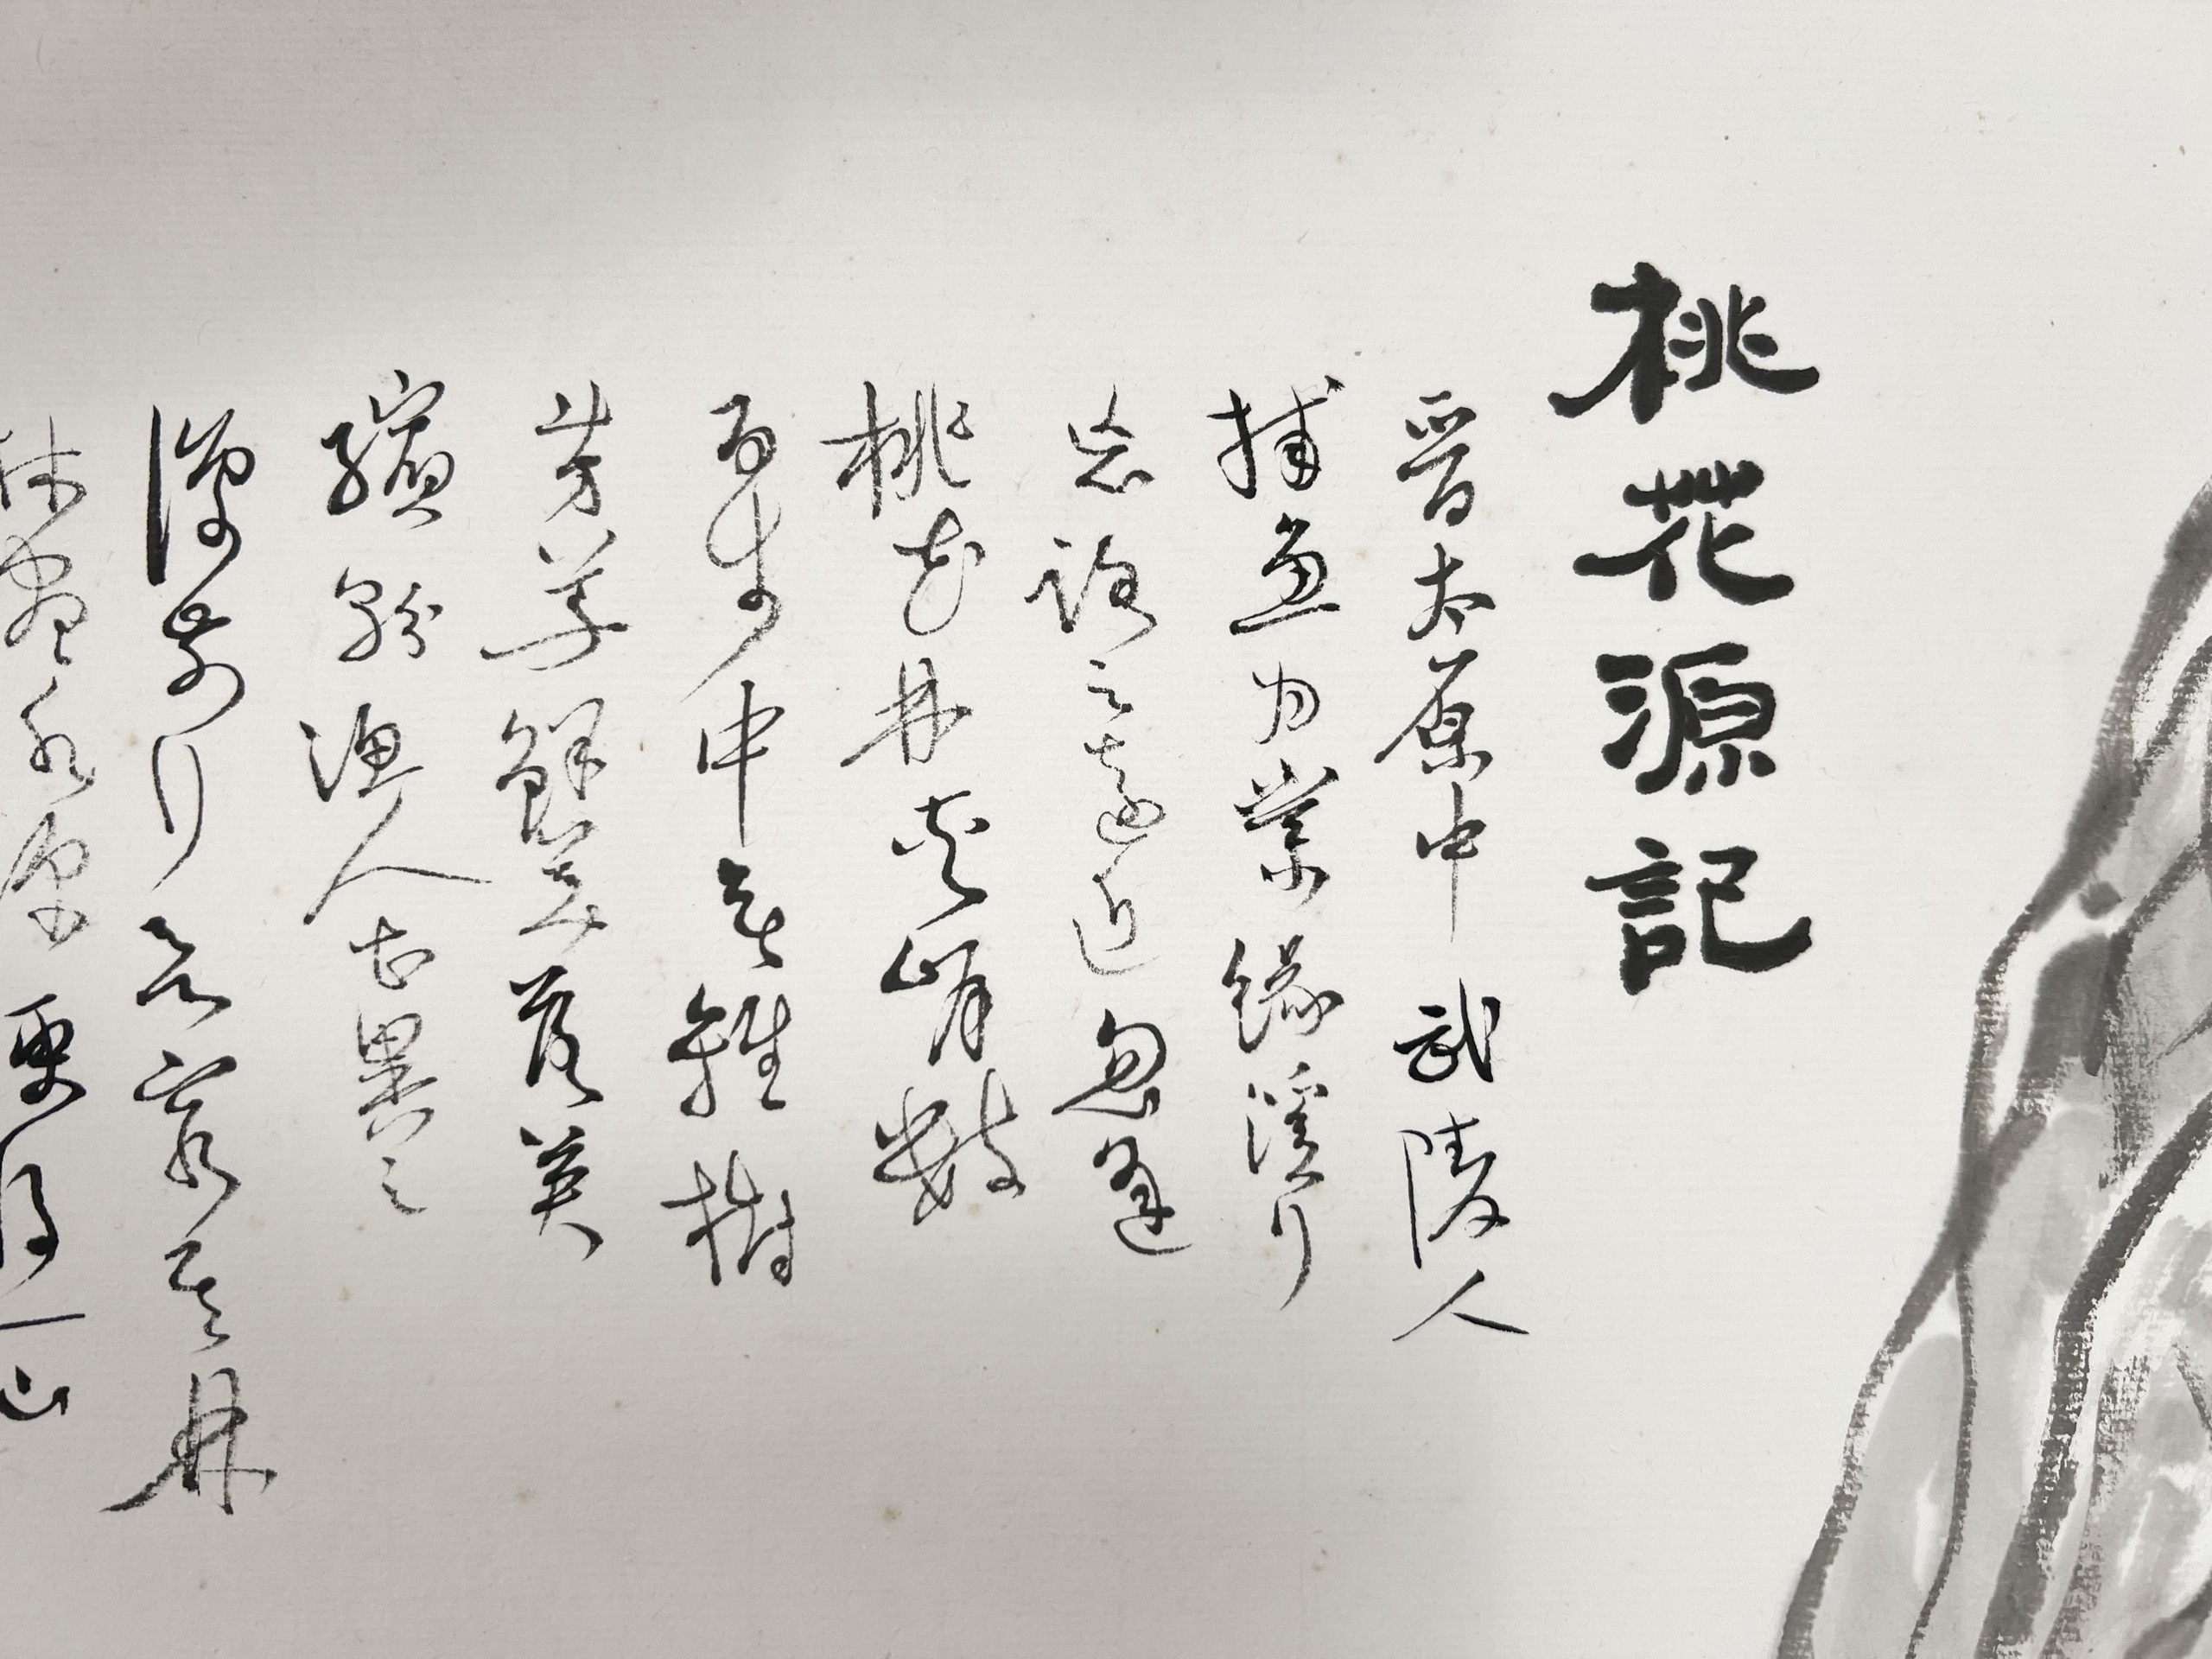 桃花源記
晉太原中武陵人
捕魚為業緣溪行
忘路之遠近忽逢
桃花林夾岸數
百步中無雜樹
芳草鮮美落英
繽紛漁人甚異之
復前行欲窮其林
林盡水源便得一山